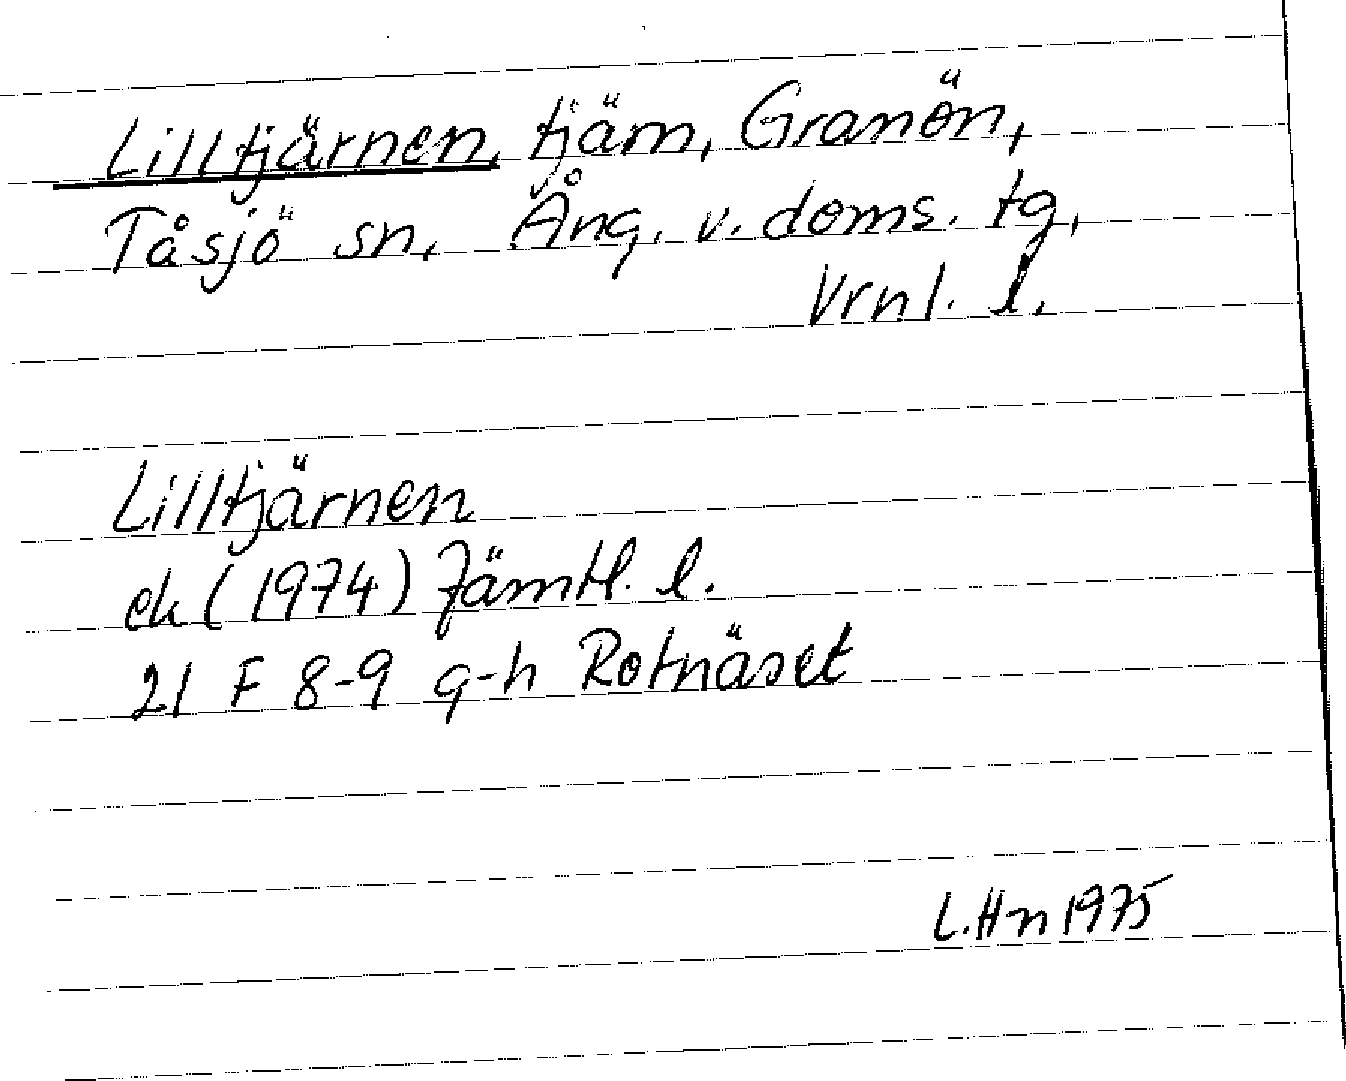 Lilltjärnen, tjärn, Granön,
Tåsjö sn, Ång. v. doms. tg,
Vrnl. l.
Lilltjärnen
ek (1974) Jämtl. l.
21 F 8-9 g-h Rotnäset
L.Hn 1975